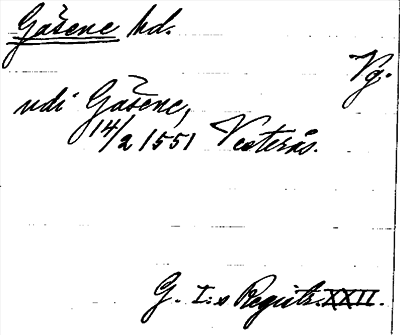 Gåsene hd.
Vg.
udi Gåsene,
14/2 1551 Vesterås.
G. I:s Registr. XXII.